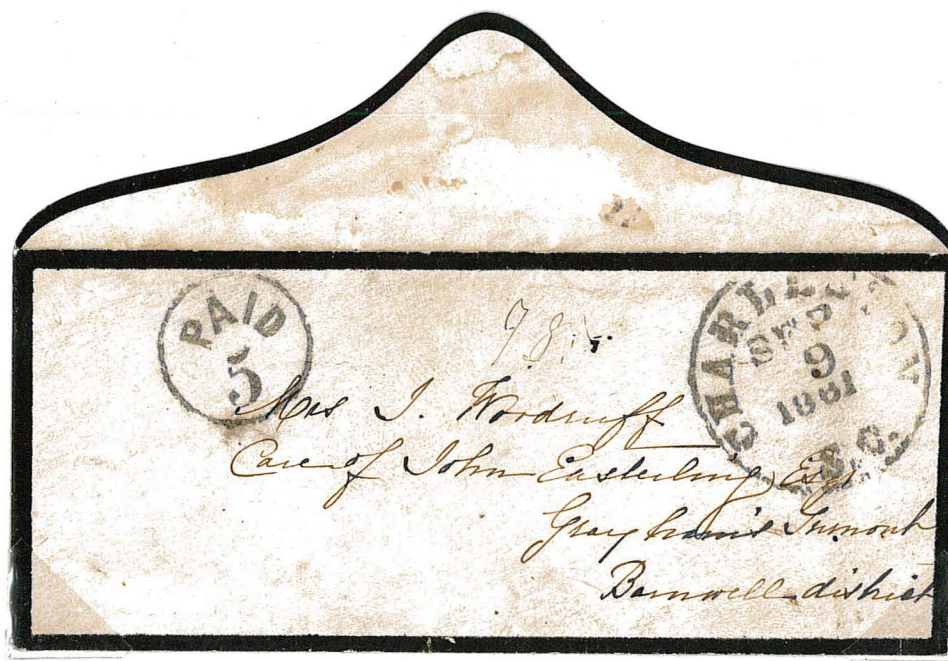 PAID
5
CHARLESTON
SEP
9
1861
S.C.
Mrs J. Woodruff
Care of John Easterling, Esqr
Grayham's
Barnwell district